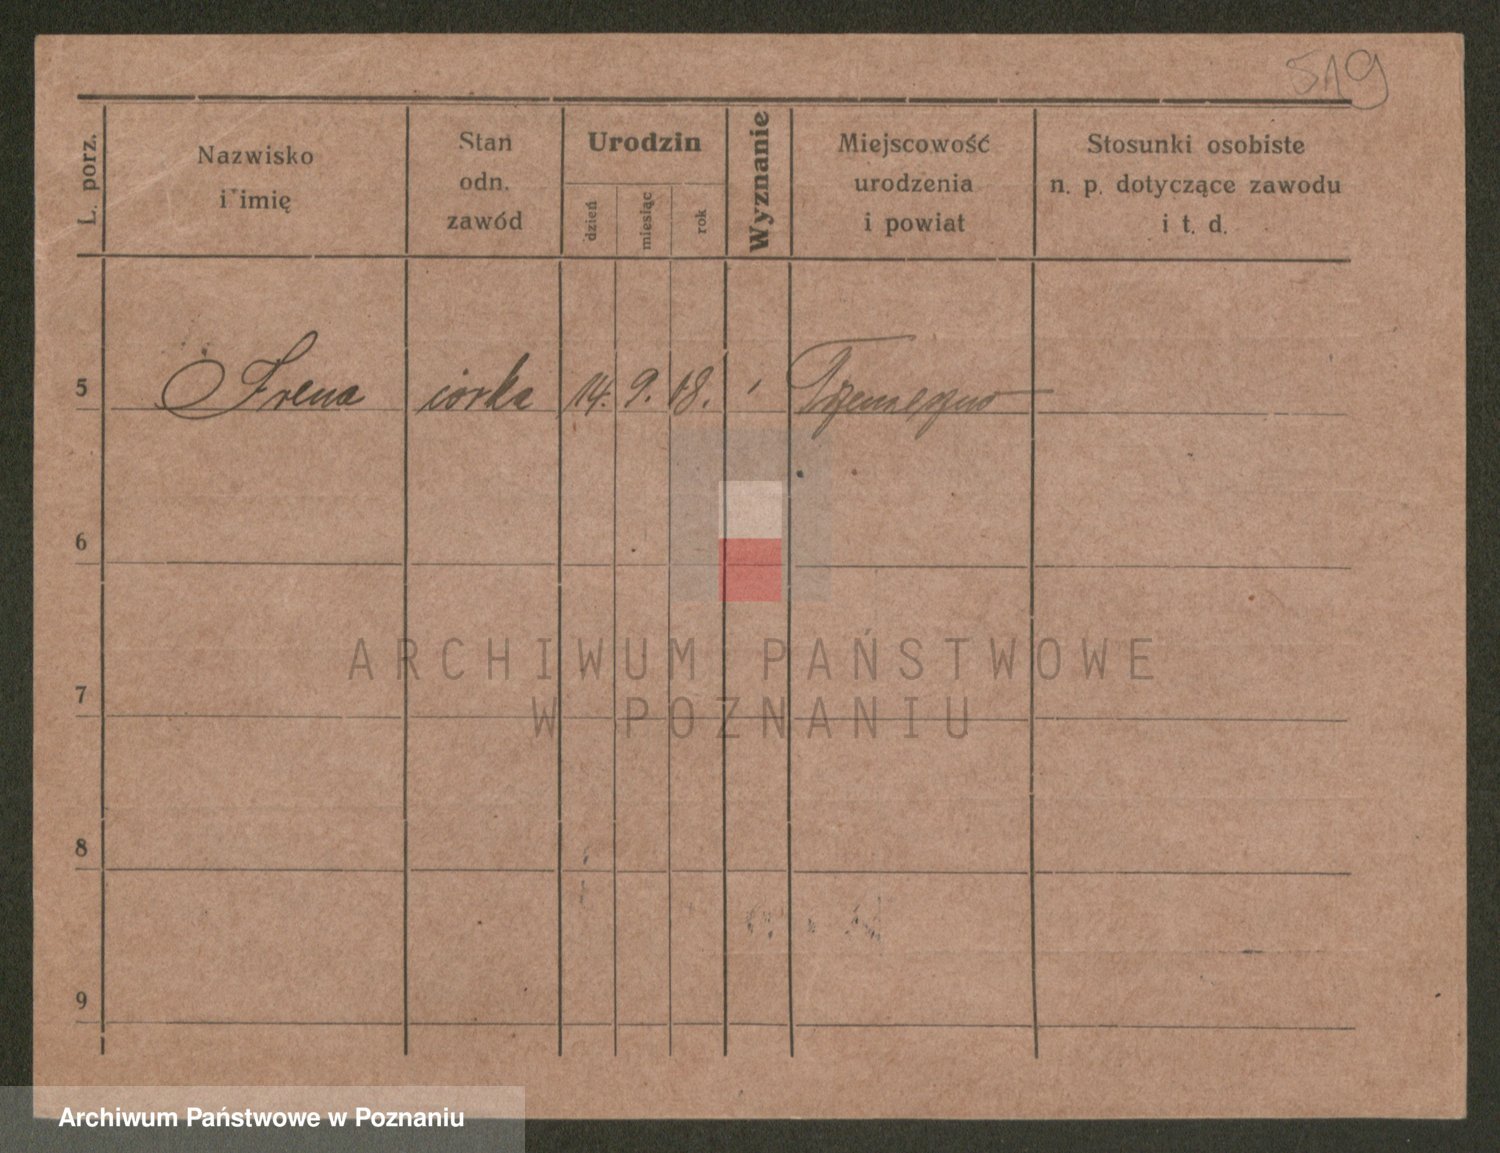 519
L. porz.
Nazwisko
i imię
Stan
odn.
zawód
Urodzin
dzień
miesiąc
rok
Wyznanie
Miejscowość
urodzenia
i powiat
Stosunki osobiste
n. p. dotyczące zawodu
i t. d.
5 Irena córka 14. 9. 18. Trzemeszno
6
7
8
9
ARCHIWUM PAŃSTWOWE
W POZNANIU
Archiwum Państwowe w Poznaniu